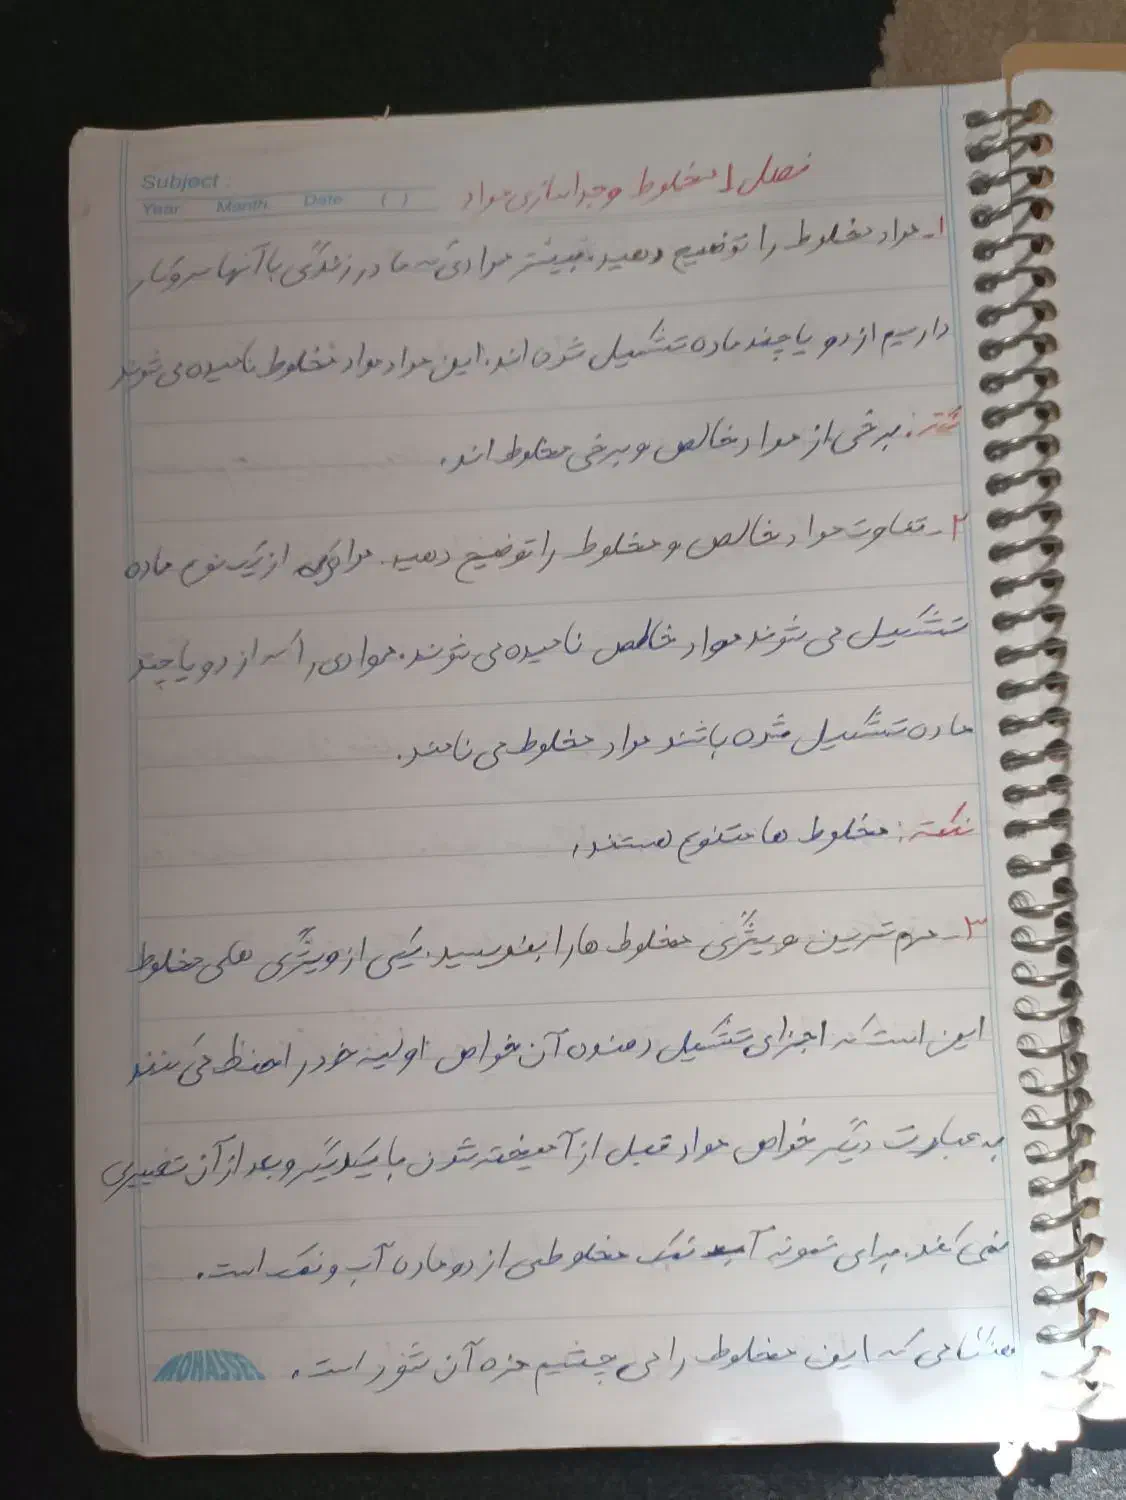 Subject :
Year Month Date ( )
فصل ۱ مخلوط و جداسازی مواد
۱- مواد مخلوط را توضیح دهید. بیشتر موادی که ما در زندگی با آنها سروکار
داریم از دو یا چند ماده تشکیل شده اند. این مواد مواد مخلوط نامیده می شوند
نکته: برخی از مواد خالص و برخی مخلوط اند.
۲- تفاوت مواد خالص و مخلوط را توضیح دهید. موادی که از یک نوع ماده
تشکیل می شوند مواد خالص نامیده می شوند. موادی را که از دو یا چند
ماده تشکیل شده باشند مواد مخلوط می نامند.
نکته: مخلوط ها متنوع هستند.
۳- مهم ترین ویژگی مخلوط ها را بنویسید. یکی از ویژگی های مخلوط
این است که اجزای تشکیل دهنده آن خواص اولیه خود را حفظ می کنند
به عبارت دیگر خواص مواد قبل از آمیخته شدن با یکدیگر و بعد از آن تغییری
نمی کند. برای نمونه آب نمک مخلوطی از دو ماده آب و نمک است.
که این مخلوط را می چشیم مزه آن شور است.
MOHASSEL